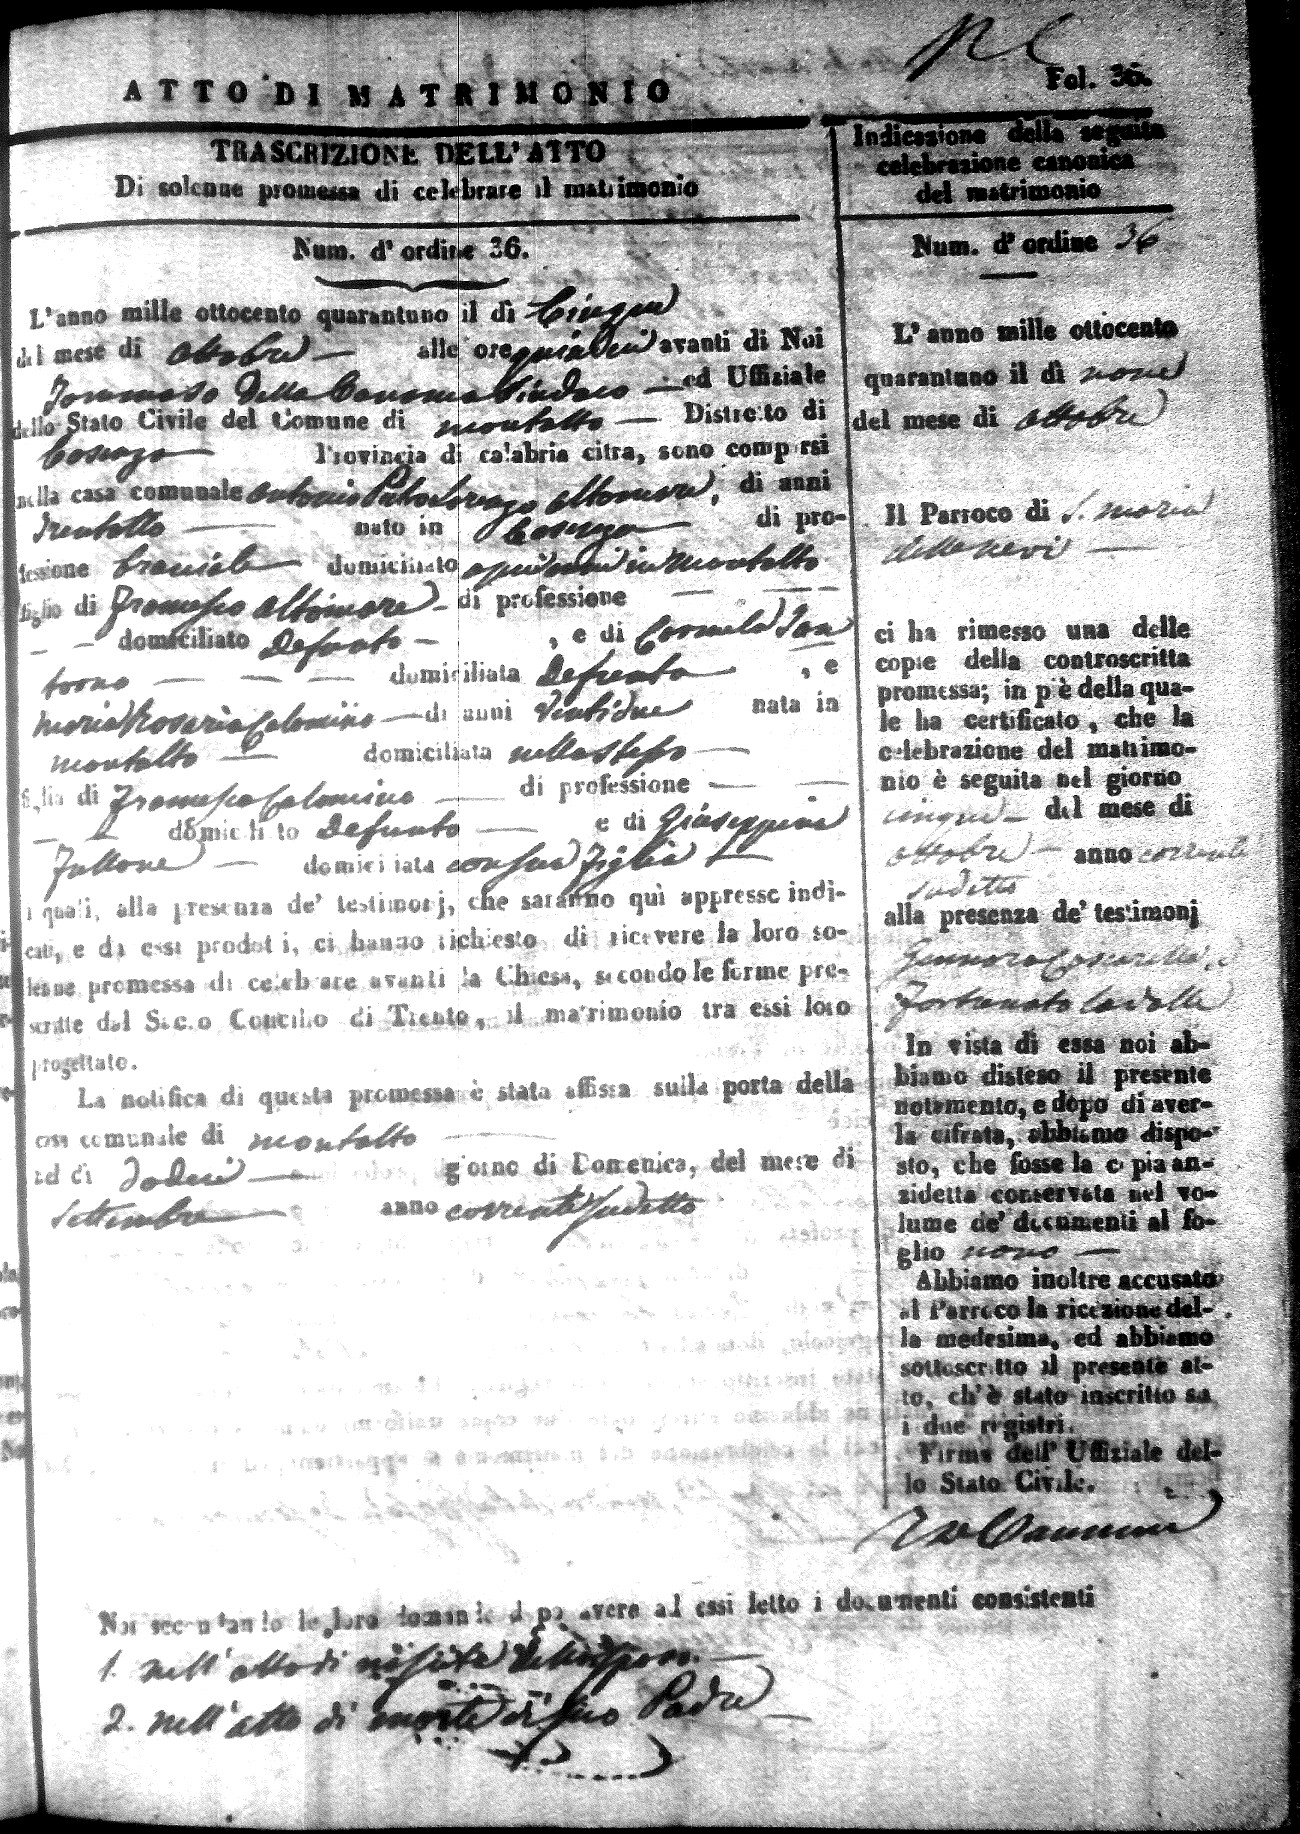 Fol. 36.
ATTO DI MATRIMONIO
TRASCRIZIONE DELL'ATTO
Di solenne promessa di celebrare il matrimonio
Num. d'ordine 36.
L'anno mille ottocento quarantuno il dì Cinque
del mese di ottobre — alle ore avanti di Noi
Tommaso Della Sindaco — ed Uffiziale
dello Stato Civile del Comune di montalto — Distretto di
Cosenza Provincia di calabria citra, sono comparsi
nella casa comunale Antonio Altomare, di anni
trentotto — nato in Cosenza di pro-
fessione domiciliato in Montalto
figlio di Francesco Altomare — di professione — —
— — domiciliato Defunto — , e di Carmela
— — — domiciliata Defunta — , e
Maria Rosaria Colomino — di anni Ventidue nata in
montalto — domiciliata nella stessa —
figlia di Francesco Colomino — di professione — —
— — domiciliato Defunto — e di Giuseppina
— domiciliata con sua figlia —
i quali, alla presenza de' testimonj, che saranno quì appresse indi-
cati, e da essi prodotti, ci hanno richiesto di ricevere la loro so-
lenne promessa di celebrare avanti la Chiesa, secondo le forme pre-
scritte dal Sacro Concilio di Trento, il matrimonio tra essi loro
progettato.
La notifica di questa promessa è stata affissa sulla porta della
casa comunale di montalto —
ed dì dodeci — giorno di Domenica, del mese di
Settembre — anno corrente sudetto
Indicazione della seguita
celebrazione canonica
del matrimonio
Num. d'ordine 36
L'anno mille ottocento
quarantuno il dì nove
del mese di ottobre
Il Parroco di S. Maria
della nevi —
ci ha rimesso una delle
copie della controscritta
promessa; in piè della qua-
le ha certificato, che la
celebrazione del matrimo-
nio è seguita nel giorno
cinque — del mese di
ottobre — anno corrente
sudetto
alla presenza de' testimonj
Gennaro
Fortunato
In vista di essa noi ab-
biamo disteso il presente
notamento, e dopo di aver-
la cifrata, abbiamo dispo-
sto, che fosse la copia an-
zidetta conservata nel vo-
lume de' documenti al fo-
glio nono —
Abbiamo inoltre accusato
al Parroco la ricezione del-
la medesima, ed abbiamo
sottoscritto il presente at-
to, ch'è stato inscritto su
i due registri.
Firma dell' Uffiziale del-
lo Stato Civile.
Noi secondando le loro domande dopo avere ad essi letto i documenti consistenti
1. nell'atto di nascita dello sposo. —
2. nell'atto di morte di suo Padre —